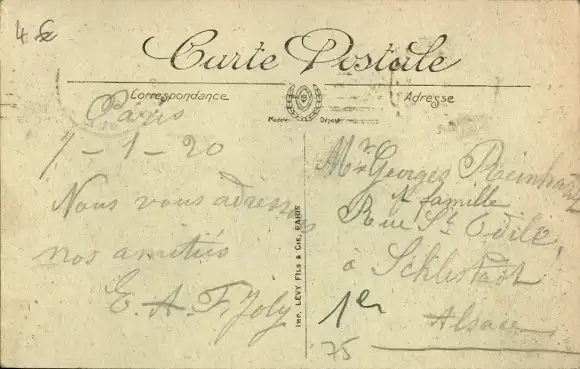 4 €
Carte Postale
Correspondance
Adresse
Modèle Déposé
Paris
7-1-20
Nous vous adressons
nos amitiés
E. A. F. Joly
IMP. LEVY FILS & CIE, PARIS
Mr Georges Reinhardt
& famille
Rue St Odile,
à Schlestadt
Alsace
1er
75